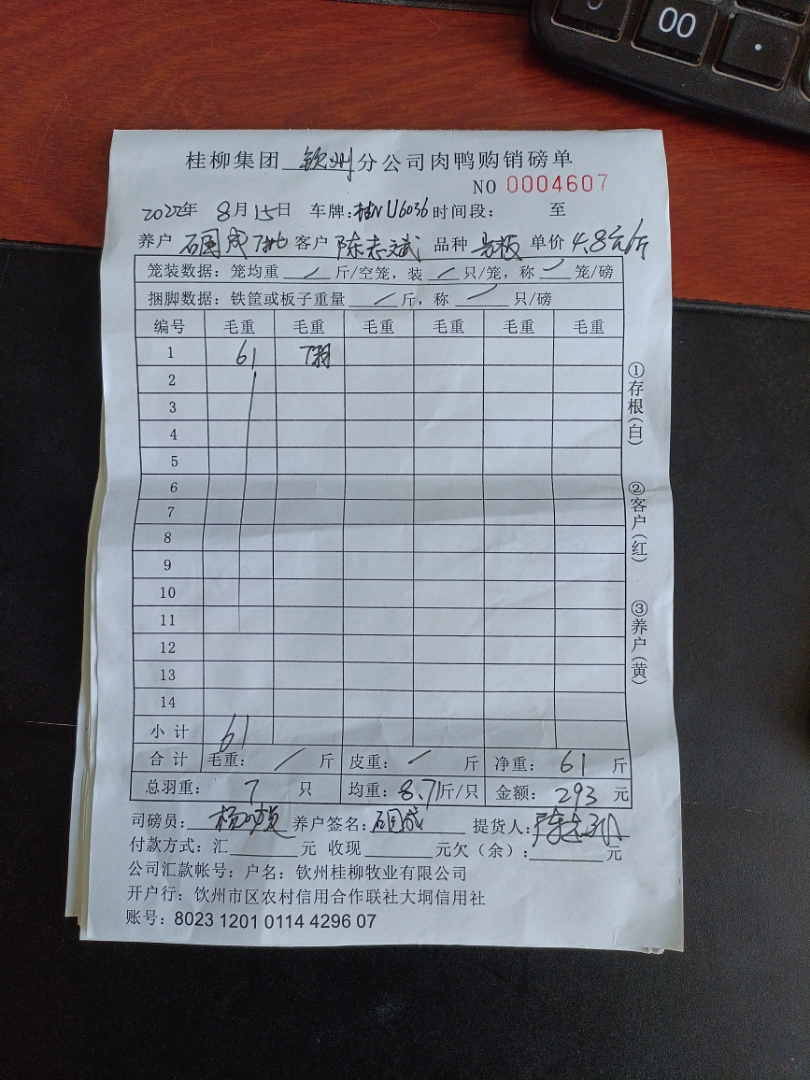 00
桂柳集团 钦州 分公司肉鸭购销磅单
NO 0004607
2022年 8月15日 车牌:桂NU6036 时间段: 至
养户 石国成7批 客户 陈志斌 品种 单价 4.8元/斤
笼装数据:笼均重 / 斤/空笼,装 / 只/笼,称 / 笼/磅
捆脚数据:铁筐或板子重量 / 斤,称 / 只/磅
编号 毛重 毛重 毛重 毛重 毛重 毛重
1 61 7羽
2
3
4
5
6
7
8
9
10
11
12
13
14
小计 61
合计 毛重: / 斤 皮重: / 斤 净重: 61 斤
总羽重: 7 只 均重: 8.71斤/只 金额: 293 元
司磅员: 养户签名: 石国成 提货人: 陈志斌
付款方式:汇 元 收现 元欠(余): 元
公司汇款帐号:户名:钦州桂柳牧业有限公司
开户行:钦州市区农村信用合作联社大垌信用社
账号:8023 1201 0114 4296 07
①存根(白)
②客户(红)
③养户(黄)